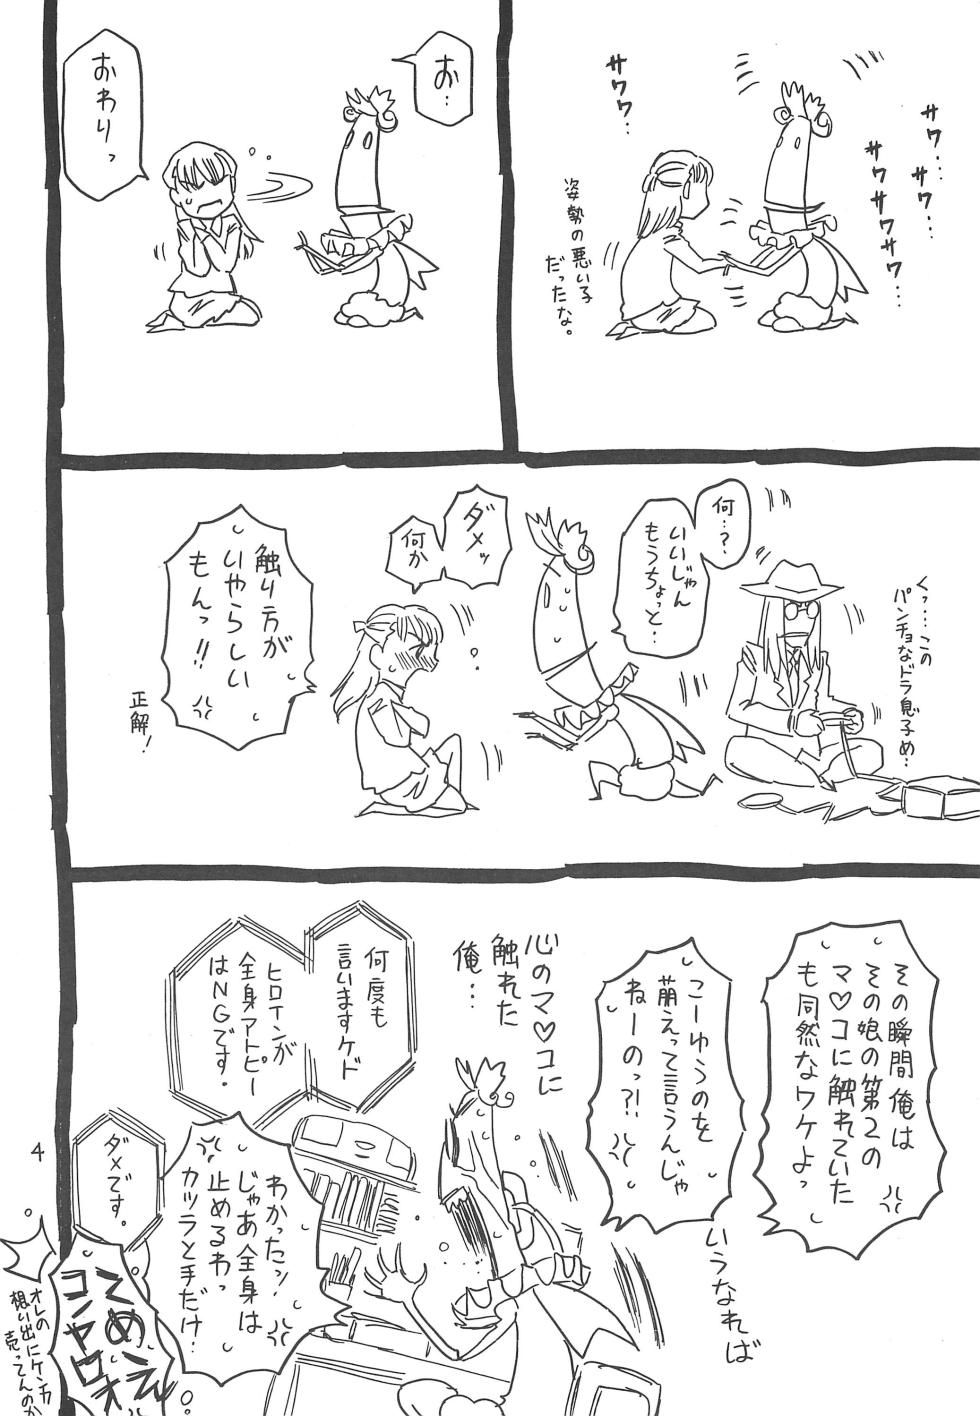 サワ…サワ…
サワサワサワ…
サワワ…
姿勢の悪い子
だったな。
お…
おわりっ
くっ……この
パンチョなドラ息子め…
何…?
いいじゃん
もうちょっと…
ダメッ
何か
触り方が
いやらしい
もんっ!!
正解!
その瞬間俺は
その娘の第2の
マ♡コに触れていた
も同然なワケよっ
こーゆうのを
萌えって言うんじゃ
ねーのっ?!
いうなれば
心のマ♡コに
触れた
俺…
何度も
言いますケド
ヒロインが
全身アトピー
はNGです。
わかったッ!
じゃあ全身は
止めるわっ
カツラと手だけ
ダメです。
てめェ
コンヤロオ
オレの
想い出にケンカ
売ってんのか
4